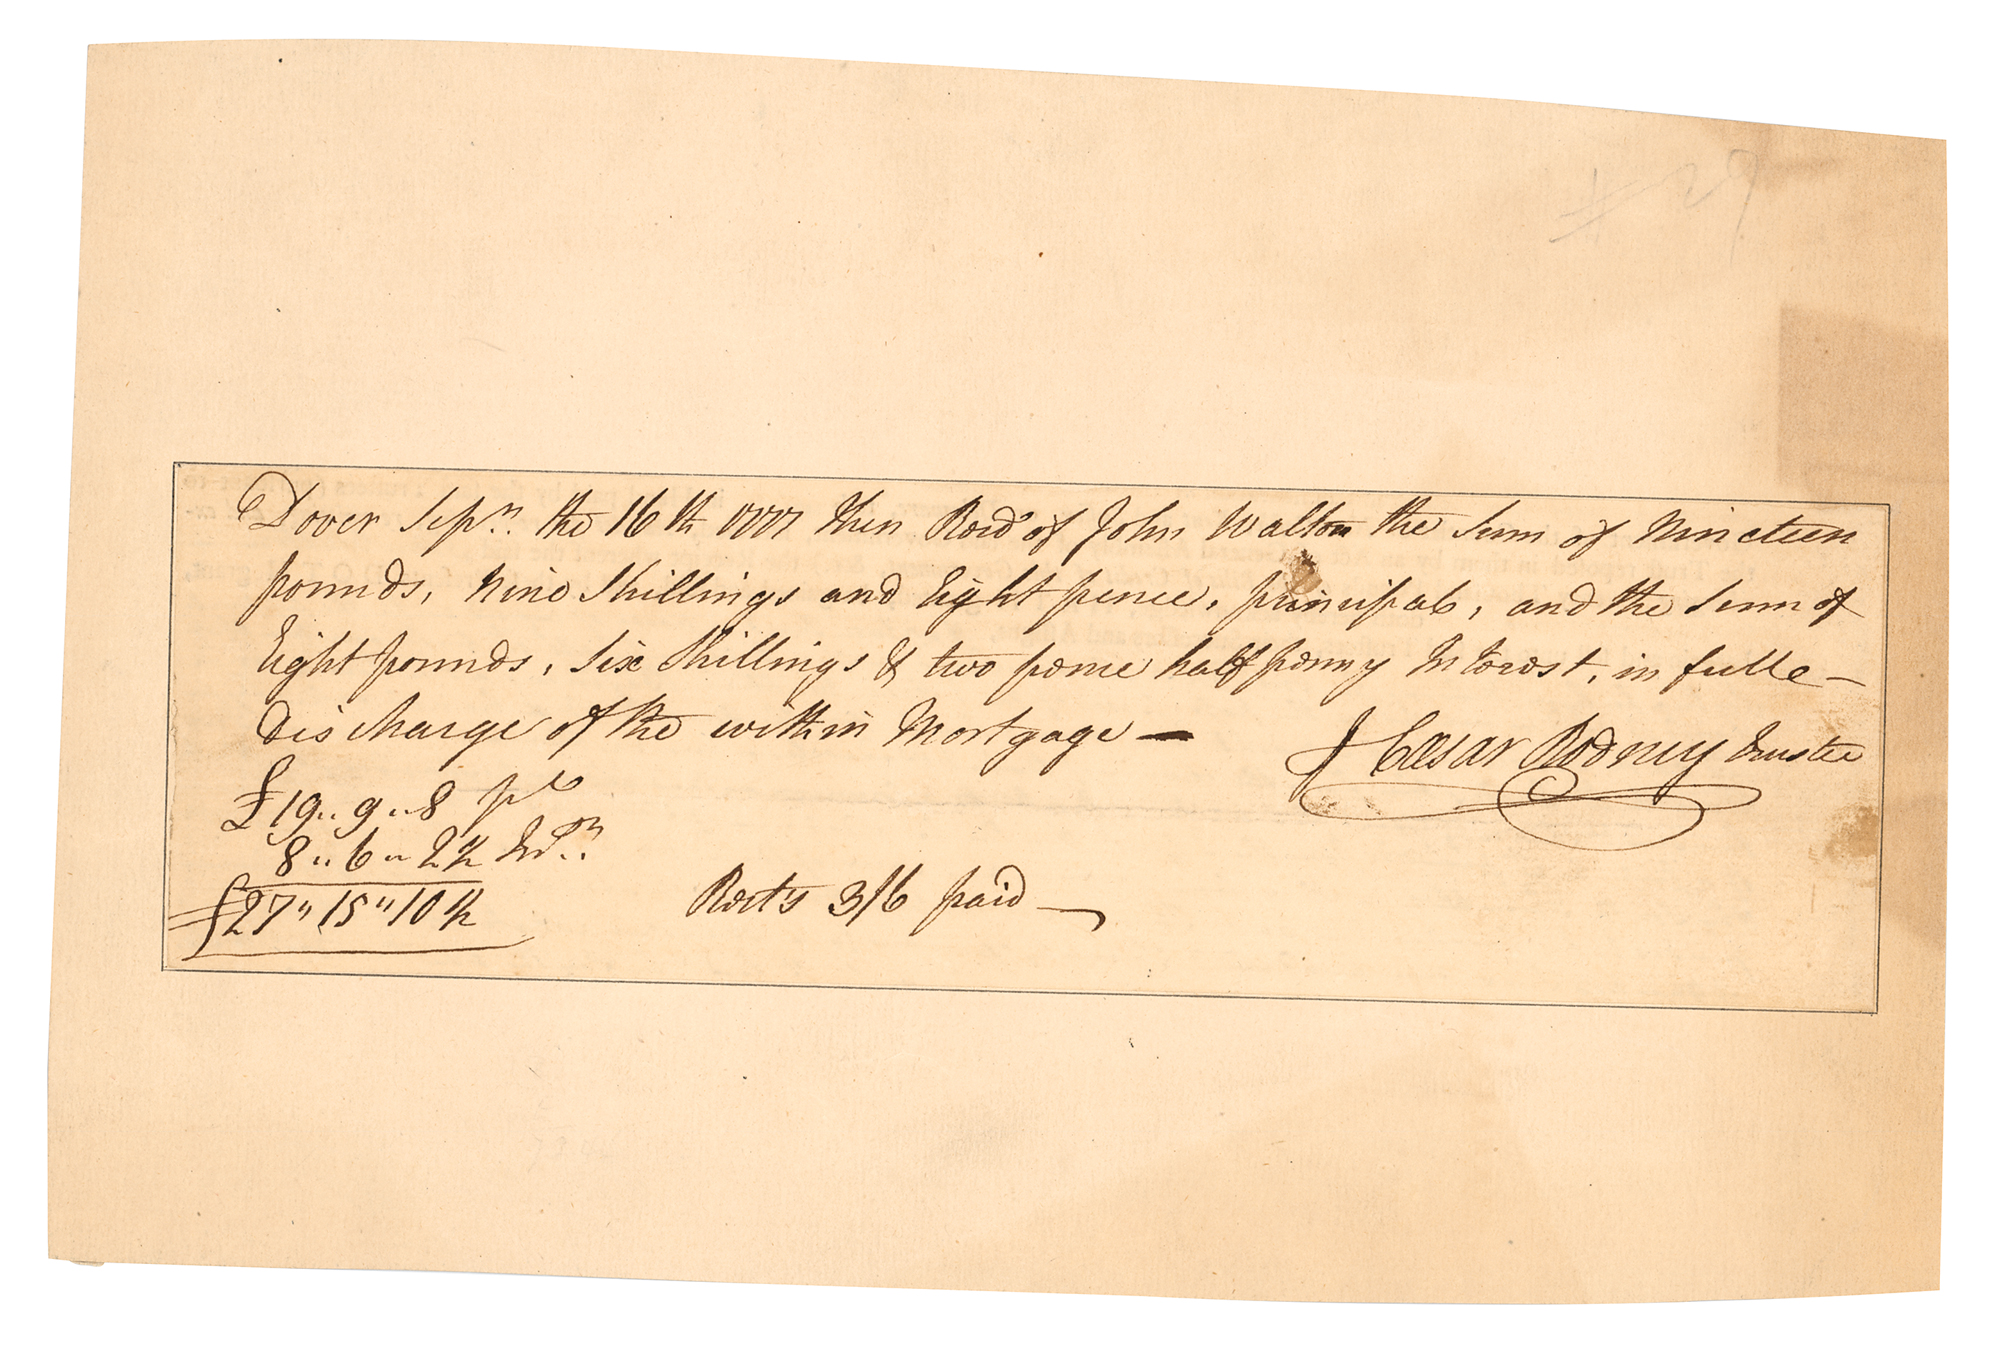 # 29
Dover Sepr. the 16th 1777 then Recd of John Walton the Sum of Nineteen
pounds, Nine Shillings and Eight pence, principal, and the Sum of
Eight pounds, Six Shillings & two pence half penny Interest, in full
Discharge of the within Mortgage —
Cæsar Rodney Trustee
£19 „ 9 „ 8 pl
8 „ 6 „ 2½ Int
£27 „ 15 „ 10½
Rects 3/6 paid —